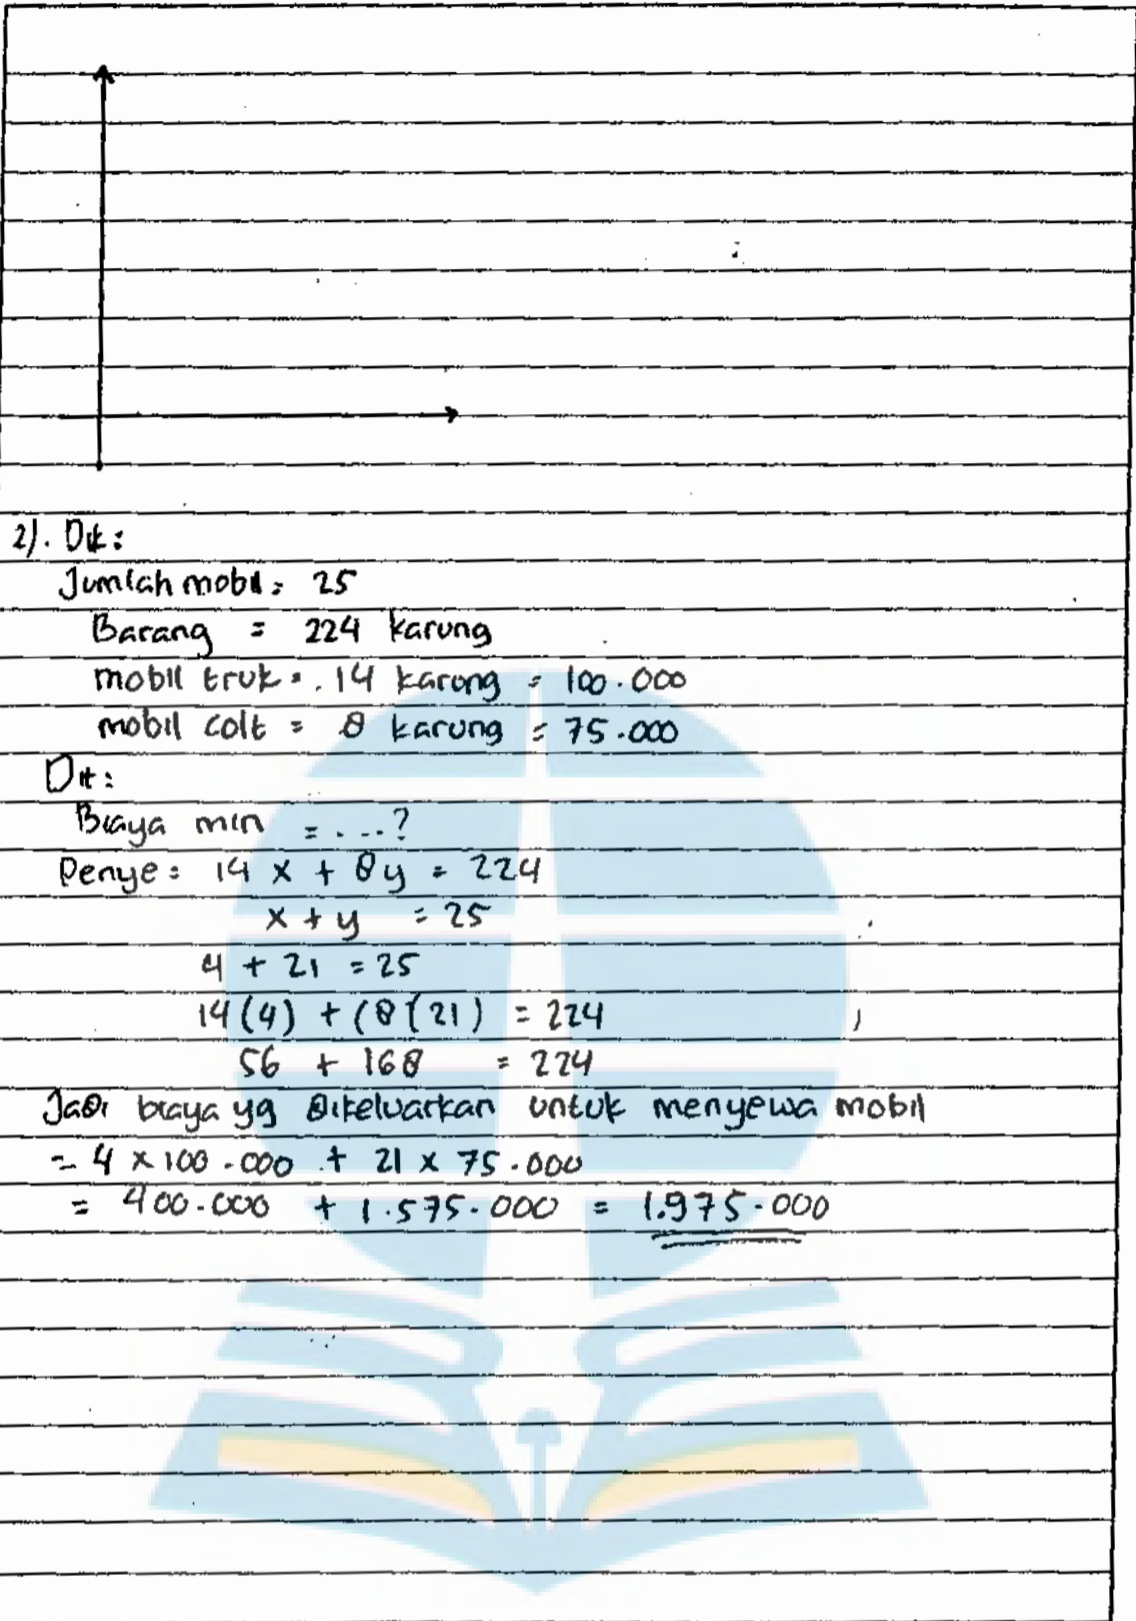 2). Dik:
Jumlah mobil = 25
Barang = 224 karung
mobil truk = 14 karong = 100.000
mobil colt = 8 karung = 75.000
Dit:
Biaya min = ....?
Penye: 14 x + 8y = 224
x + y = 25
4 + 21 = 25
14(4) + (8(21) = 224
56 + 168 = 224
Jadi biaya yg dikeluarkan untuk menyewa mobil
= 4 x 100.000 + 21 x 75.000
= 400.000 + 1.575.000 = 1.975.000